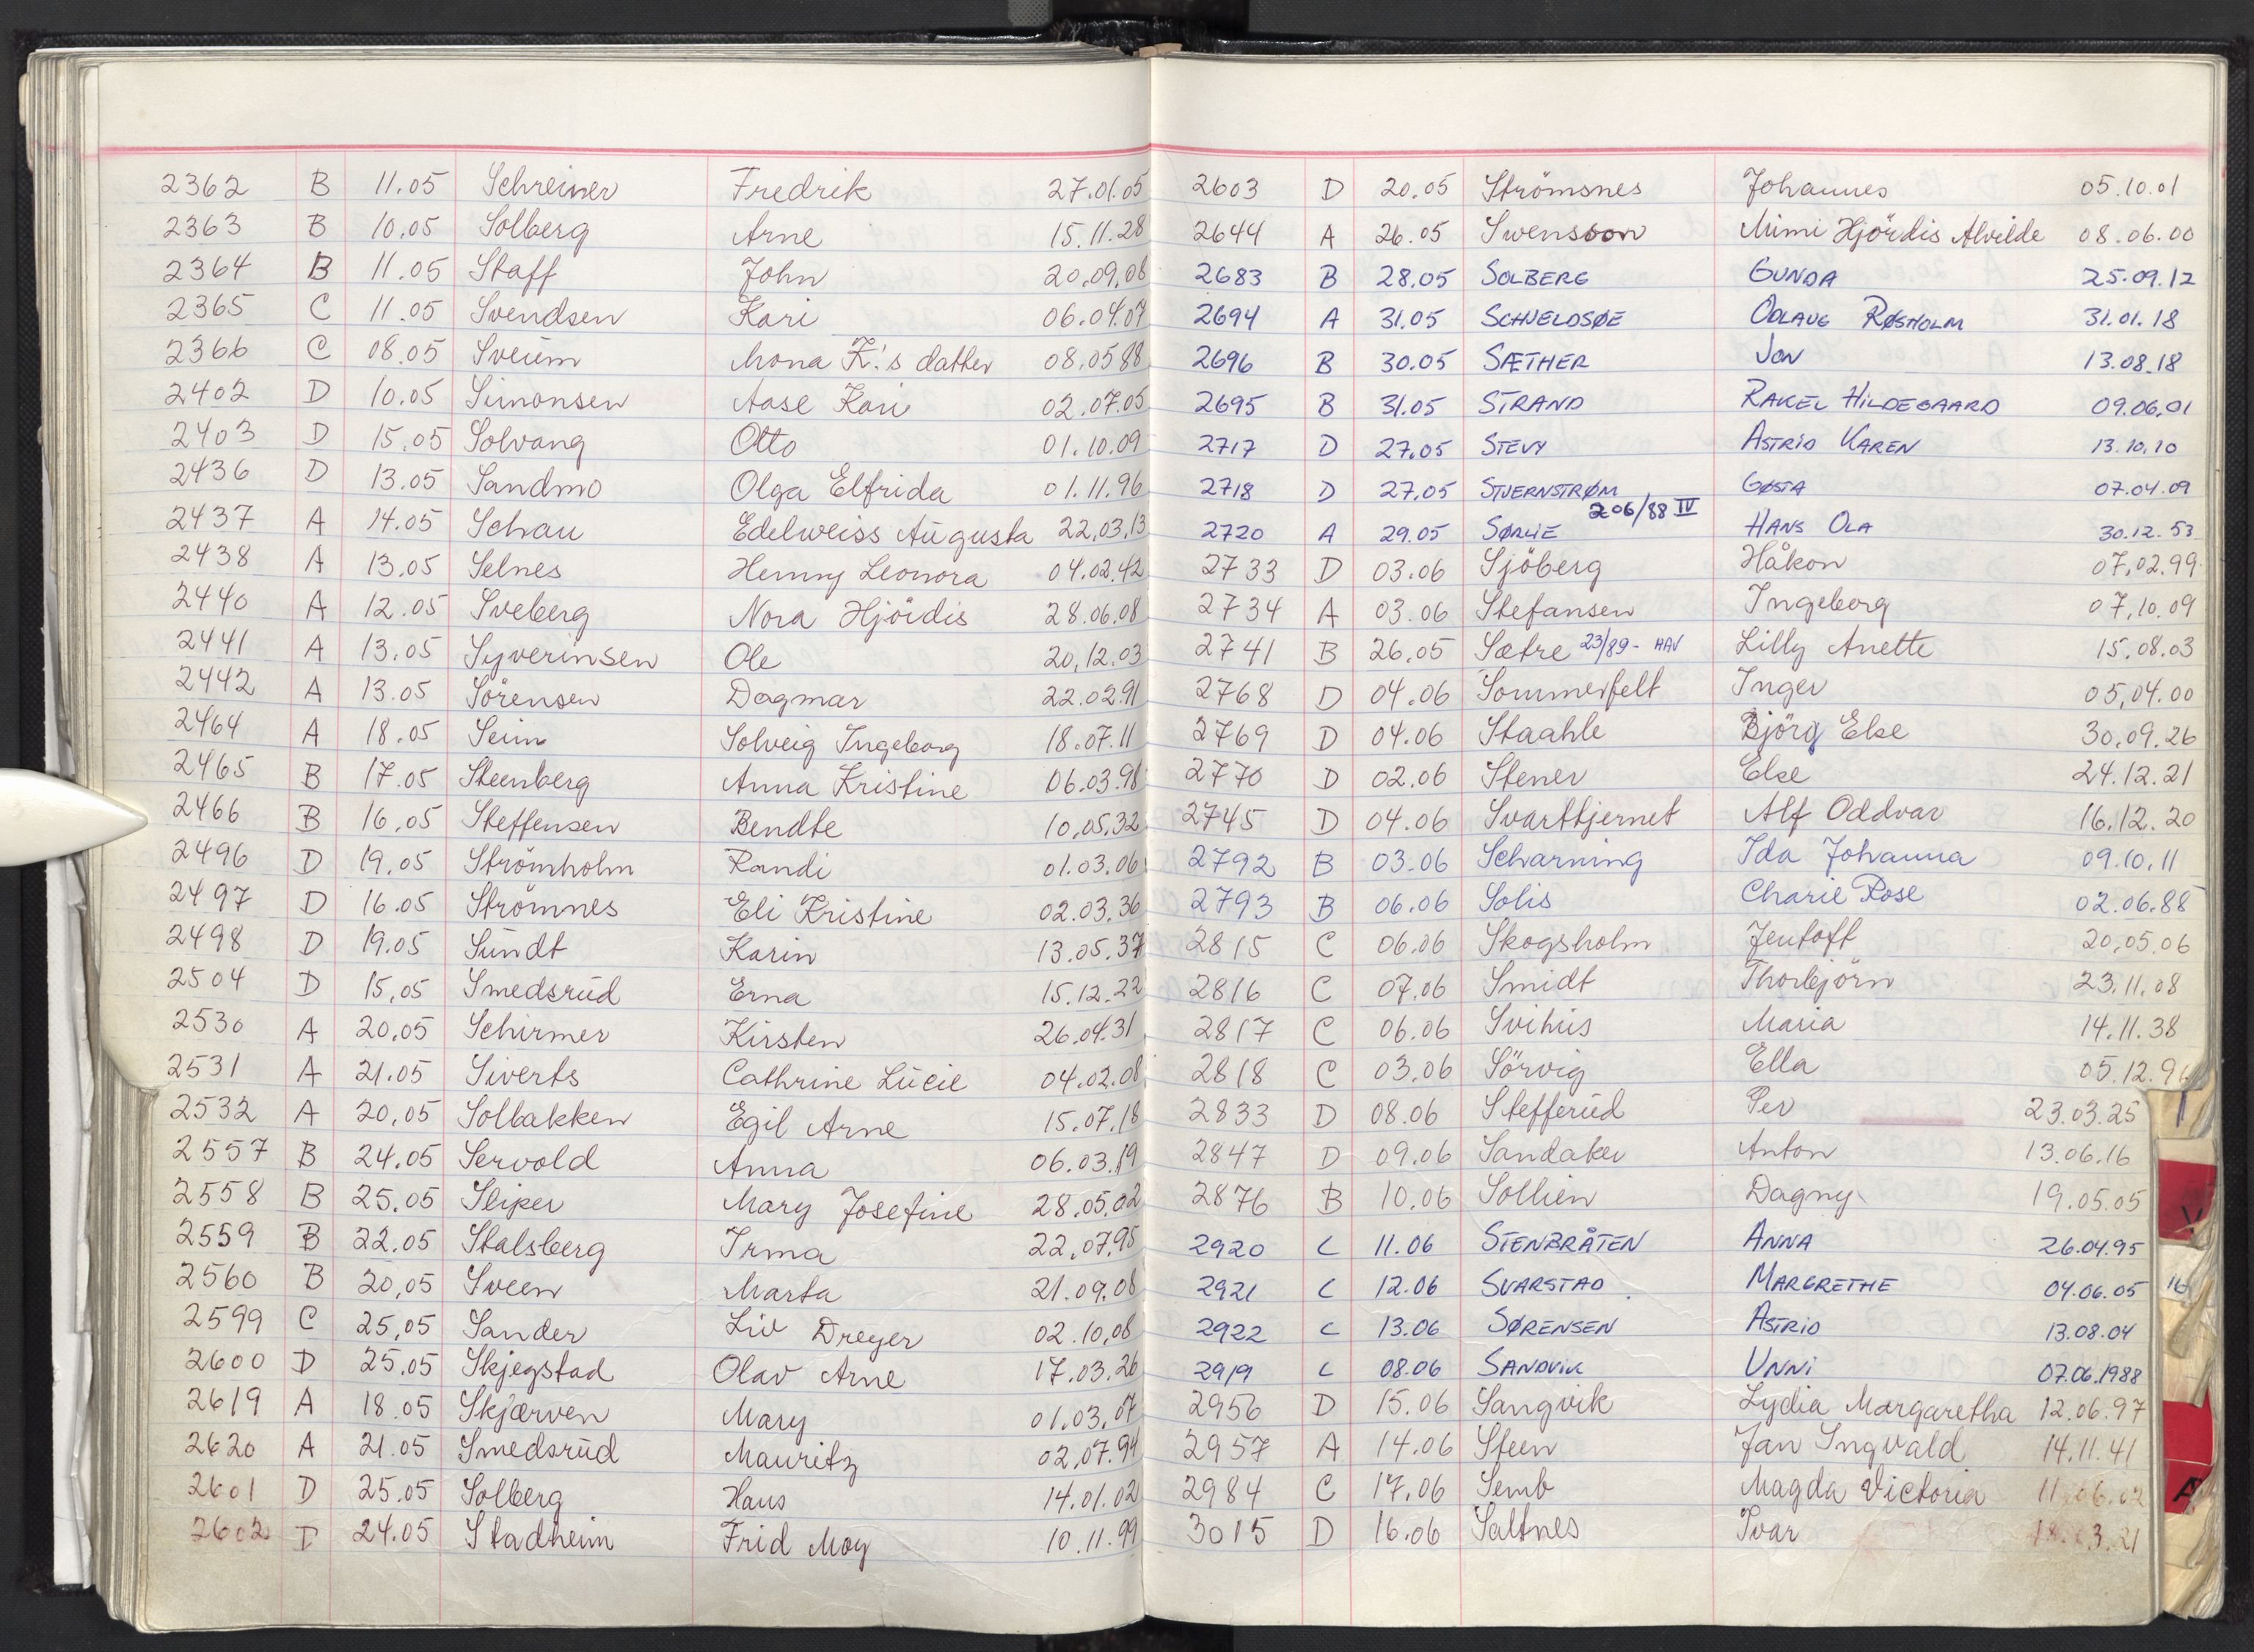 2362 B 11.05 Schreiner Fredrik 27.01.05
2363 B 10.05 Solberg Arne 15.11.28
2364 B 11.05 Staff John 20.09.06
2365 C 11.05 Svendsen Kari 06.04.07
2366 C 08.05 Sveum Mona K.'s datter 08.05 88
2402 D 10.05 Simonsen Aase Kari 02.07.05
2403 D 15.05 Solvang Otto 01.10.09
2436 D 13.05 Sandmo Olga Elfrida 01.11.96
2437 A 14.05 Schau Edelweiss Augusta 22.03.13
2438 A 13.05 Selnes Henny Leonora 04.02.42
2440 A 12.05 Sveberg Nora Hjördis 28.06.08
2441 A 13.05 Syverinsen Ole 20.12.03
2442 A 13.05 Sörensen Dagmar 22.02.91
2464 A 18.05 Seim Solveig Ingeborg 18.07.11
2465 B 17.05 Steenberg Anna Kristine 06.03.98
2466 B 16.05 Steffensen Bendte 10.05.32
2496 D 19.05 Strömholm Randi 01.03.06
2497 D 16.05 Strömnes Eli Kristine 02.03.36
2498 D 19.05 Sundt Karin 13.05.37
2504 D 15.05 Smedsrud Erna 15.12.22
2530 A 20.05 Schirmer Kirsten 26.04.31
2531 A 21.05 Siverts Cathrine Lucie 04.02.08
2532 A 20.05 Solbakken Egil Arne 15.07.18
2557 B 24.05 Servold Anna 06.03.19
2558 B 25.05 Sliper Mary Josefine 28.05.02
2559 B 22.05 Stalsberg Irma 22.07.95
2560 B 20.05 Sveen Marta 21.09.08
2599 C 25.05 Sander Liv Dreyer 02.10.08
2600 D 25.05 Skjegstad Olav Arne 17.03.26
2619 A 18.05 Skjærven Mary 01.03.07
2620 A 21.05 Smedsrud Mauritz 02.07.94
2601 D 25.05 Solberg Hans 14.01.02
2602 D 24.05 Stadheim Frid Moy 10.11.99
2603 D 20.05 Strömsnes Johannes 05.10.01
2644 A 26.05 Swensson Mimi Hjördis Alvilde 08.06.00
2683 B 28.05 SOLBERG GUNDA 25.09.12
2694 A 31.05 SCHJELDSØE ODLAUG RØSHOLM 31.01.18
2696 B 30.05 SÆTHER JON 13.08.18
2695 B 31.05 STRAND RAKEL HILDEGAARD 09.06.01
2717 D 27.05 STEVY ASTRID KAREN 13.10.10
2718 D 27.05 STJERNSTRØM GØSTA 07.04.09
206/88 IV
2720 A 29.05 SØRLIE HANS OLA 30.12.53
2733 D 03.06 Sjöberg Håkon 07.02.99
2734 A 03.06 Stefansen Ingeborg 07.10.09
2741 B 26.05 Sætre 23/89 - HAV Lilly Anette 15.08.03
2768 D 04.06 Sommerfelt Inger 05.04.00
2769 D 04.06 Staahle Björg Else 30.09.26
2770 D 02.06 Stener Else 24.12.21
2745 D 04.06 Svarttjernet Alf Oddvar 16.12.20
2792 B 03.06 Scharning Ida Johanna 09.10.11
2793 B 06.06 Solis Charie Rose 02.06.88
2815 C 06.06 Skogsholm Jentoft 20.05.06
2816 C 07.06 Smidt Thorbjörn 23.11.08
2817 C 06.06 Svihus Maria 14.11.38
2818 C 03.06 Sörvig Ella 05.12.9
2833 D 08.06 Stefferud Per 23.03.25
2847 D 09.06 Sandaker Anton 13.06.16
2876 B 10.06 Sollien Dagny 19.05.05
2920 C 11.06 STENBRÅTEN ANNA 26.04.95
2921 C 12.06 SVARSTAD MARGRETHE 04.06.05
2922 C 13.06 SØRENSEN ASTRID 13.08.04
2919 C 08.06 SANDVIK UNNI 07.06.1988
2956 D 15.06 Sangvik Lydia Margaretha 12.06.97
2957 A 14.06 Steen Jan Ingvald 14.11.41
2984 C 17.06 Semb Magda Victoria 11.06.02
3015 D 16.06 Saltnes Ivar